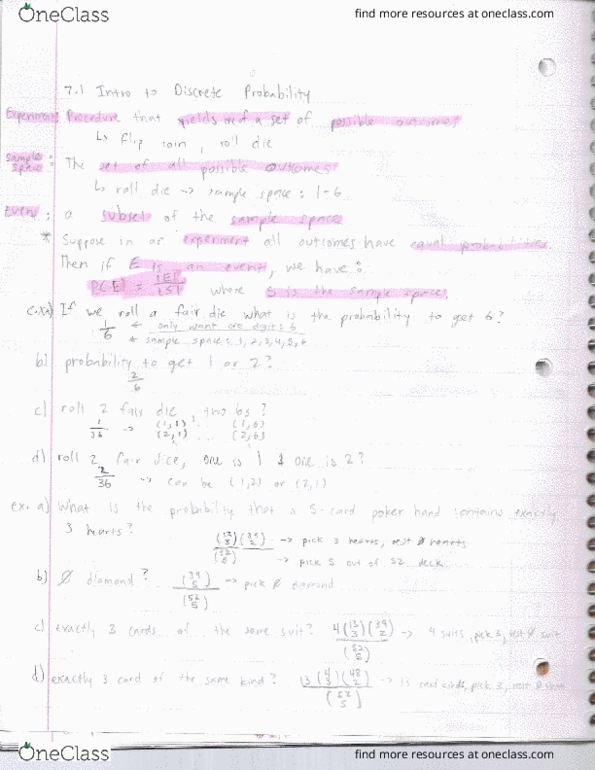 OneClass
find more resources at oneclass.com
7.1 Intro to Discrete Probability
Experiment: Procedure that yields out of a set of possible outcomes
↳ flip coin, roll die
Sample Space: The set of all possible outcomes
↳ roll die → sample space: 1-6
Event: a subset of the sample space
* Suppose in an experiment all outcomes have equal probabilities.
Then if E is an event, we have:
P(E) = |E|/|S| where S is the sample space.
ex.a) If we roll a fair die what is the probability to get 6?
1/6 ← only want one digit: 6
← sample space: 1, 2, 3, 4, 5, 6
b) probability to get 1 or 2?
2/6
c) roll 2 fair die two 6s?
1/36 → (1,1) ... (1,6)
(2,1) ... (2,6)
d) roll 2 fair dice, one is 1 & one is 2?
2/36 → can be (1,2) or (2,1)
ex. a) What is the probability that a 5-card poker hand contains exactly
3 hearts? (13 3)(39 2)/(52 5) → pick 3 hearts, rest ∅ hearts
→ pick 5 out of 52 deck
b) ∅ diamond? (39 5)/(52 5) → pick ∅ diamond
c) exactly 3 cards of the same suit? 4(13 3)(39 2)/(52 5) → 4 suits, pick 3, rest ∅ suit
d) exactly 3 card of the same kind? 13(4 3)(48 2)/(52 5) → 13 card kinds, pick 3, rest ∅
OneClass
find more resources at oneclass.com